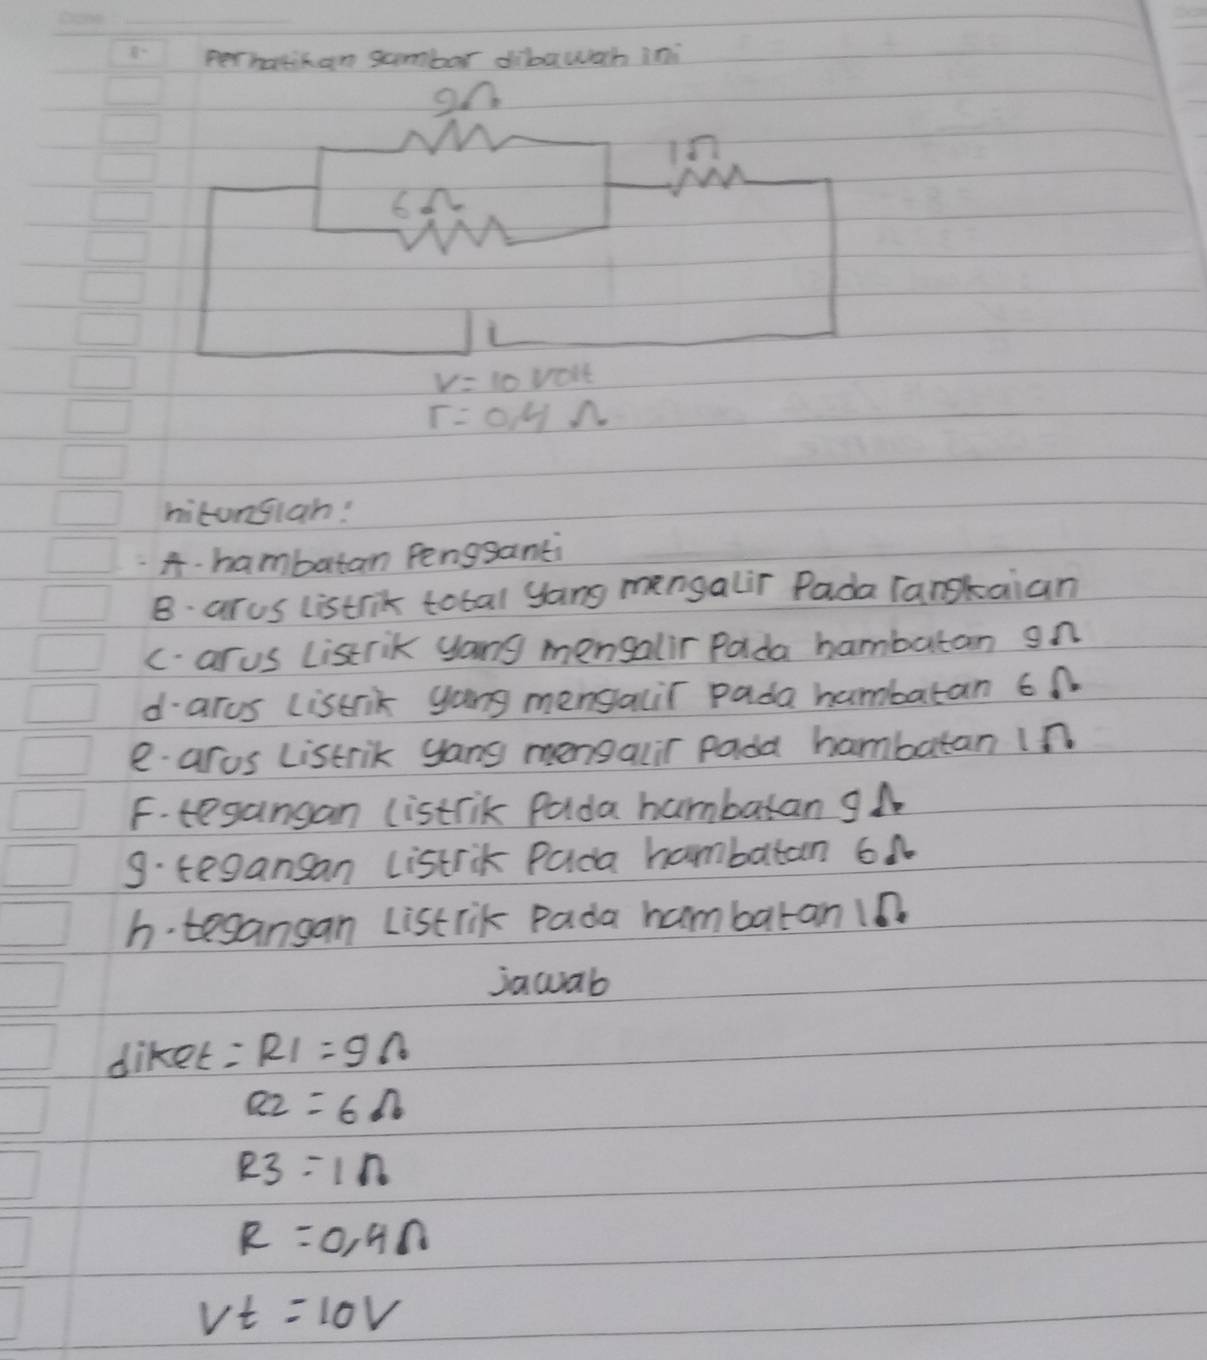 8. Perhatikan gambar dibawah ini
9Ω
1Ω
6Ω
V = 10 volt
r = 0,4 Ω
hitunglah:
A. hambatan Pengganti
B. arus Listrik total yang mengalir Pada rangkaian
C. arus Listrik yang mengalir Pada hambatan 9Ω
d. arus Listrik yang mengalir pada hambatan 6Ω
e. arus Listrik yang mengalir pada hambatan 1Ω
F. tegangan listrik Pada hambatan 9Ω
g. tegangan Listrik Pada hambatan 6Ω
h. tegangan Listrik Pada hambatan 1Ω
jawab
diket = R1 = 9Ω
R2 = 6Ω
R3 = 1Ω
R = 0,4Ω
Vt = 10V